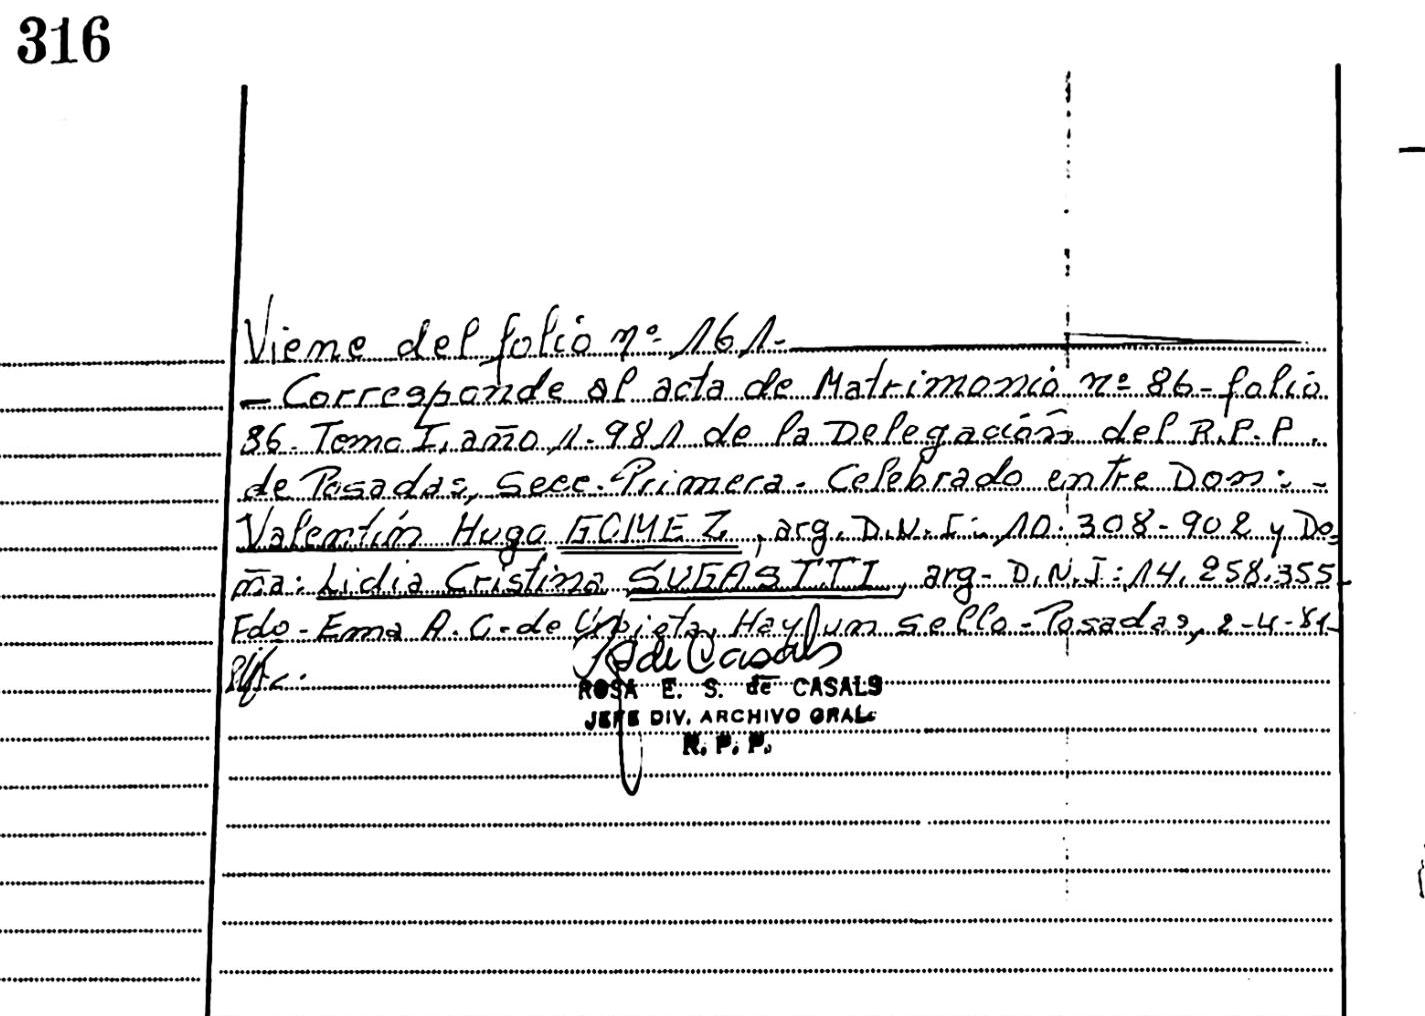 316
Viene del folio nº 161.
- Corresponde al acta de Matrimonio nº 86 - folio
86. Tomo I. año 1.981 de la Delegación del R.P.P.
de Posadas, Secc. Primera. Celebrado entre Don: -
Valentín Hugo GOMEZ, arg. D.N.I: 10.308-902 y Do=
ña: Lidia Cristina SUGASTTI, arg- D.N.I: 14.258.355-
Fdo - Ema A. C. de Urbieta, Hay un sello - Posadas, 2-4-81-
ROSA E. S. de CASALS
JEFE DIV. ARCHIVO GRAL.
R. P. P.